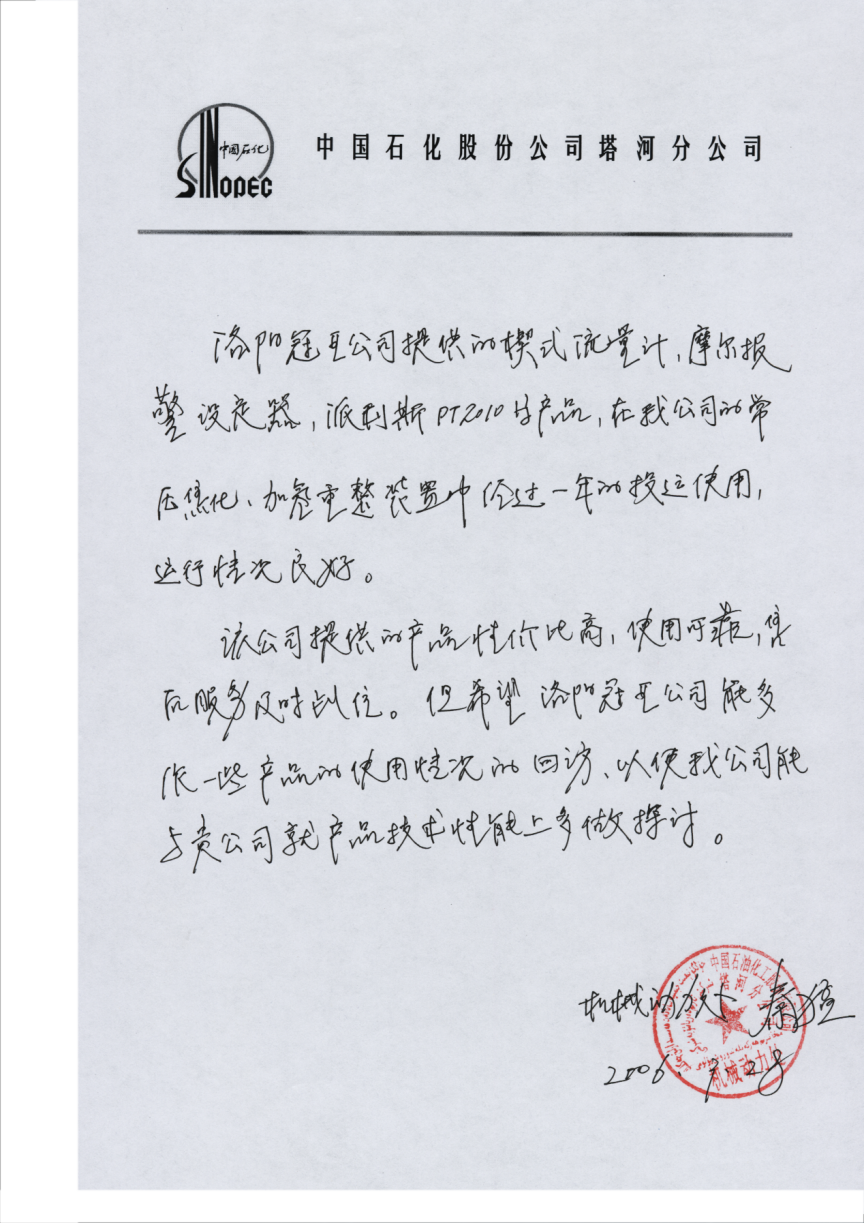 中国石化
SINOPEC
中国石化股份公司塔河分公司
洛阳冠亚公司提供的楔式流量计,摩尔报
警设定器,派利斯PT2010等产品,在我公司的常
压焦化、加氢重整装置中经过一年的投运使用,
运行情况良好。
该公司提供的产品性价比高,使用可靠,售
后服务及时到位。但希望洛阳冠亚公司能多
作一些产品的使用情况的回访、以便我公司能
与贵公司就产品技术性能上多做探讨。
机械动力处 秦
2006.
中国石油化工
塔河分公司
机械动力处